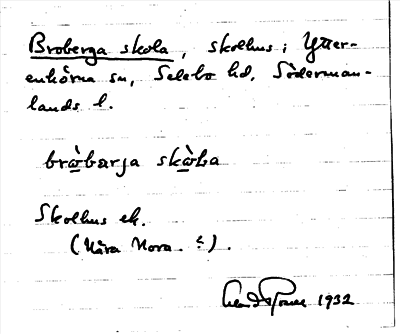 Broberga skola, skolhus i Ytter-
enhörna sn, Selebo hd, Söderman-
lands l.
brò̲barja skò̲la
Skolhus ek.
(Nära Mora ?).
1932